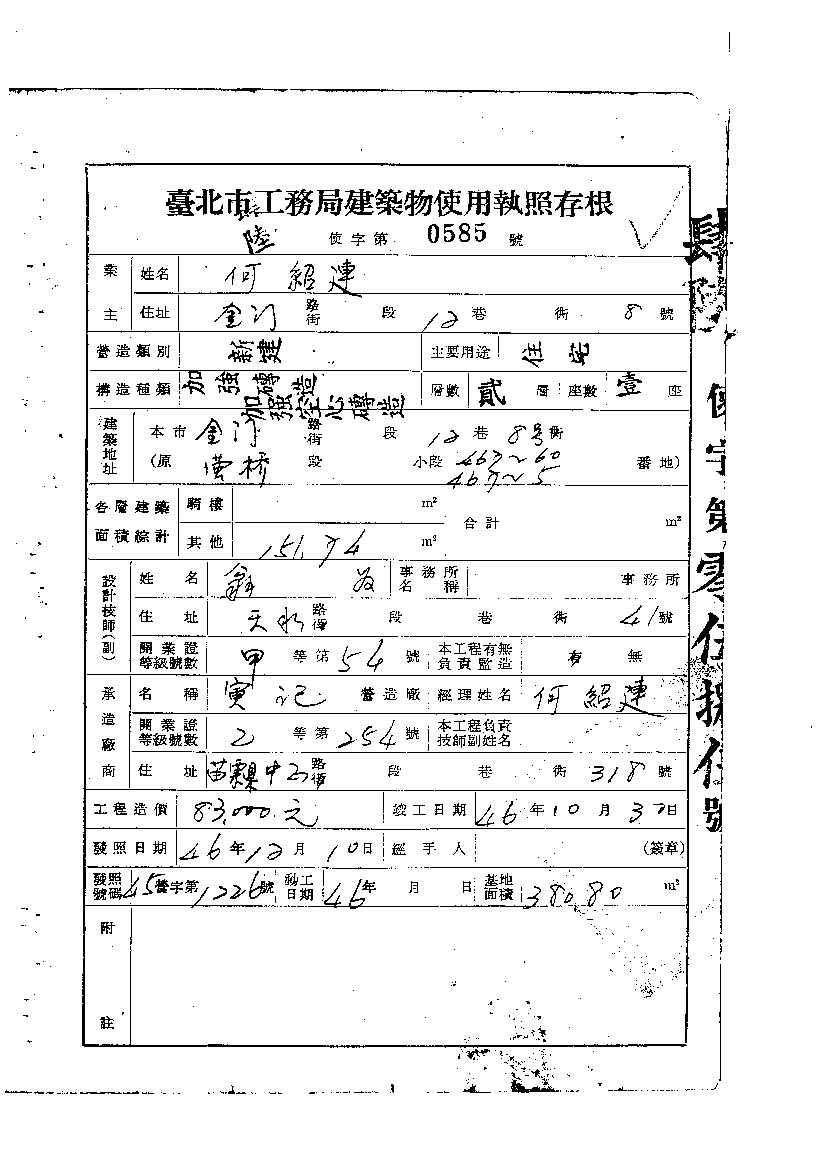 臺北市工務局建築物使用執照存根
陸 使字第 0585 號
業主 姓名 何紹連
住址 金門 路街 段 12 巷 衖 8 號
營造類別 新建 主要用途 住宅
構造種類 加強磚造 加強空心磚造 層數 貳 層 座數 壹 座
建築地址 本市 金門 路街 段 12 巷 8号 衖
(原 段 小段 467~60 番地)
467~5
各層建築面積綜計 騎樓 m² 合計 m²
其他 151.74 m²
設計技師(副) 姓名 事務所名稱 事務所
住址 天水 路街 段 巷 衖 41 號
開業證等級號數 甲 等第 54 號 本工程有無負責監造 有 無
承造廠商 名稱 寅記 營造廠 經理姓名 何紹連
開業證等級號數 乙 等第 254 號 本工程負責技師副姓名
住址 苗栗中正 路街 段 巷 衖 318 號
工程造價 83,000元 竣工日期 46 年 10 月 30 日
發照日期 46 年 12 月 10 日 經手人 (簽章)
發照號碼 45 營字第 1226 號 動工日期 46 年 月 日 基地面積 380.80 m²
附註
肆陸 使字第零伍捌伍號